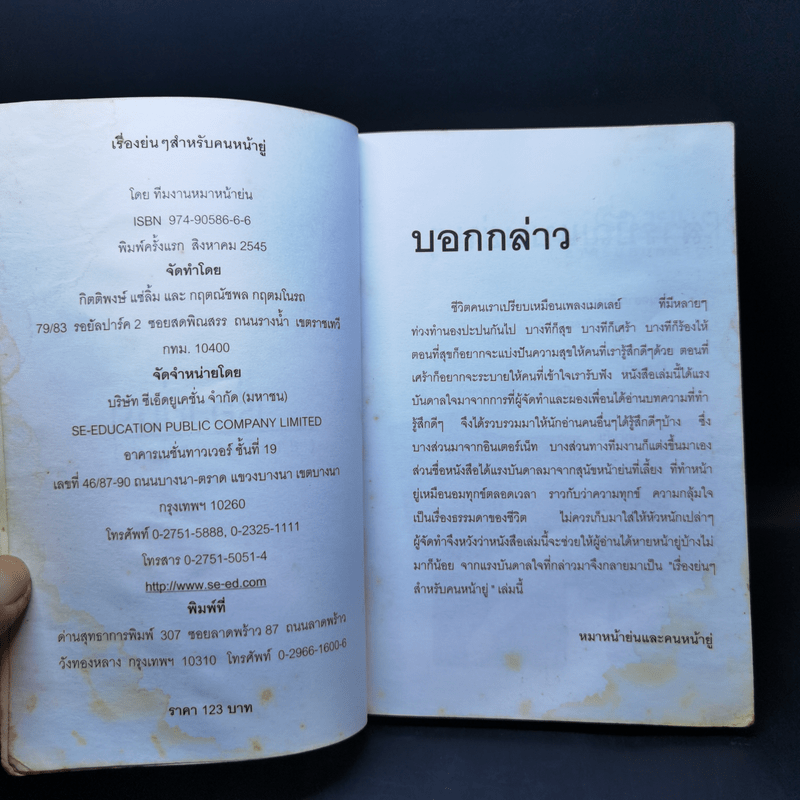 เรื่องย่นๆสำหรับคนหน้ายู่
โดย ทีมงานหมาหน้าย่น
ISBN 974-90586-6-6
พิมพ์ครั้งแรก สิงหาคม 2545
จัดทำโดย
กิตติพงษ์ แซ่ลิ้ม และ กฤตณัชพล กฤตมโนรถ
79/83 รอยัลปาร์ค 2 ซอยสดพิณสรร ถนนรางน้ำ เขตราชเทวี
กทม. 10400
จัดจำหน่ายโดย
บริษัท ซีเอ็ดยูเคชั่น จำกัด (มหาชน)
SE-EDUCATION PUBLIC COMPANY LIMITED
อาคารเนชั่นทาวเวอร์ ชั้นที่ 19
เลขที่ 46/87-90 ถนนบางนา-ตราด แขวงบางนา เขตบางนา
กรุงเทพฯ 10260
โทรศัพท์ 0-2751-5888, 0-2325-1111
โทรสาร 0-2751-5051-4
http://www.se-ed.com
พิมพ์ที่
ด่านสุทธาการพิมพ์ 307 ซอยลาดพร้าว 87 ถนนลาดพร้าว
วังทองหลาง กรุงเทพฯ 10310 โทรศัพท์ 0-2966-1600-6
ราคา 123 บาท
บอกกล่าว
ชีวิตคนเราเปรียบเหมือนเพลงเมดเลย์ ที่มีหลายๆ
ท่วงทำนองปะปนกันไป บางทีก็สุข บางทีก็เศร้า บางทีก็ร้องไห้
ตอนที่สุขก็อยากจะแบ่งปันความสุขให้คนที่เรารู้สึกดีๆด้วย ตอนที่
เศร้าก็อยากจะระบายให้คนที่เข้าใจเรารับฟัง หนังสือเล่มนี้ได้แรง
บันดาลใจมาจากการที่ผู้จัดทำและผองเพื่อนได้อ่านบทความที่ทำ
รู้สึกดีๆ จึงได้รวบรวมมาให้นักอ่านคนอื่นๆได้รู้สึกดีๆบ้าง ซึ่ง
บางส่วนมาจากอินเตอร์เน็ท บางส่วนทางทีมงานก็แต่งขึ้นมาเอง
ส่วนชื่อหนังสือได้แรงบันดาลมาจากสุนัขหน้าย่นที่เลี้ยง ที่ทำหน้า
ยู่เหมือนอมทุกข์ตลอดเวลา ราวกับว่าความทุกข์ ความกลุ้มใจ
เป็นเรื่องธรรมดาของชีวิต ไม่ควรเก็บมาใส่ให้หัวหนักเปล่าๆ
ผู้จัดทำจึงหวังว่าหนังสือเล่มนี้จะช่วยให้ผู้อ่านได้หายหน้ายู่บ้างไม่
มากก็น้อย จากแรงบันดาลใจที่กล่าวมาจึงกลายมาเป็น "เรื่องย่นๆ
สำหรับคนหน้ายู่ " เล่มนี้
หมาหน้าย่นและคนหน้ายู่